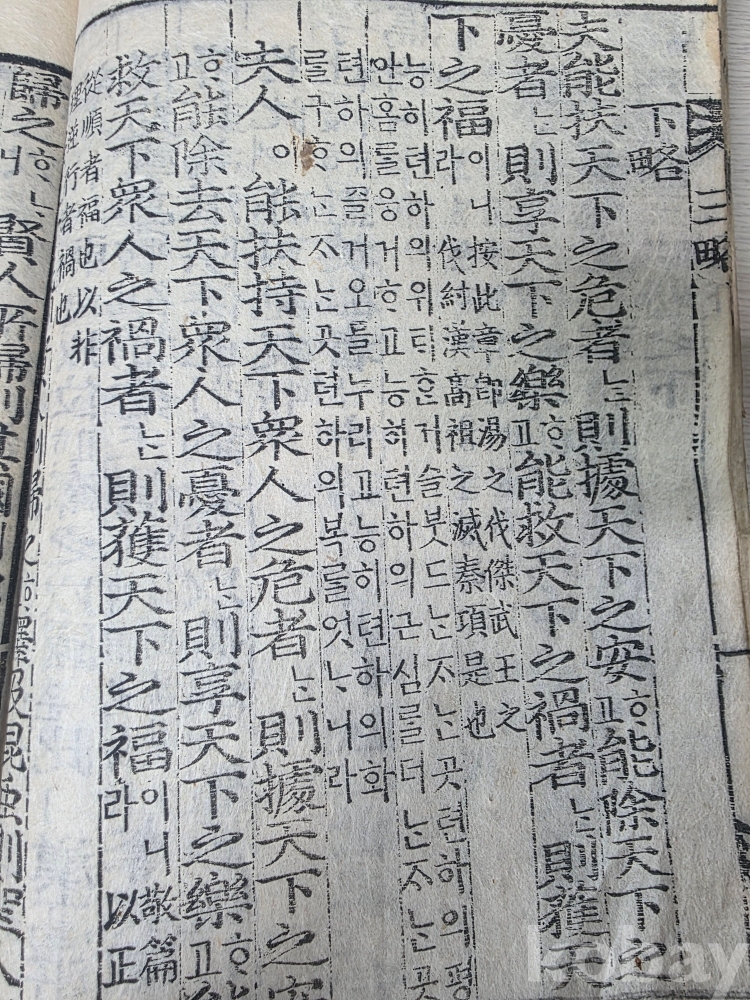 三略
下略
夫能扶天下之危者ᄂᆞᆫ則據天下之安ᄒᆞ고能除天下之
憂者ᄂᆞᆫ則享天下之樂ᄒᆞ고能救天下之禍者ᄂᆞᆫ則獲天
下之福이니라
按此章卽湯之伐傑武王之
伐紂漢高祖之滅秦項是也
능히텬하의위ᄐᆡᄒᆞᆫ거슬븟드ᄂᆞᆫᄌᆞᄂᆞᆫ곳텬하의평
안홈를응거ᄒᆞ고능혀텬하의근심를더ᄂᆞᆫᄌᆞᄂᆞᆫ곳
텬하의즐거오믈누리고능히텬하의화
를구ᄒᆞᄂᆞᆫᄌᆞᄂᆞᆫ곳텬하의복를엇ᄂᆞ니라
夫人○能扶持天下衆人之危者ᄂᆞᆫ則據天下之安
ᄒᆞ고能除去天下衆人之憂者ᄂᆞᆫ則享天下之樂ᄒᆞ고能
救天下衆人之禍者ᄂᆞᆫ則獲天下之福이니라敬篇以正
從順者福也以非
理逆行者禍也
歸之ᄒᆞᄂᆞ니賢人所歸則其國